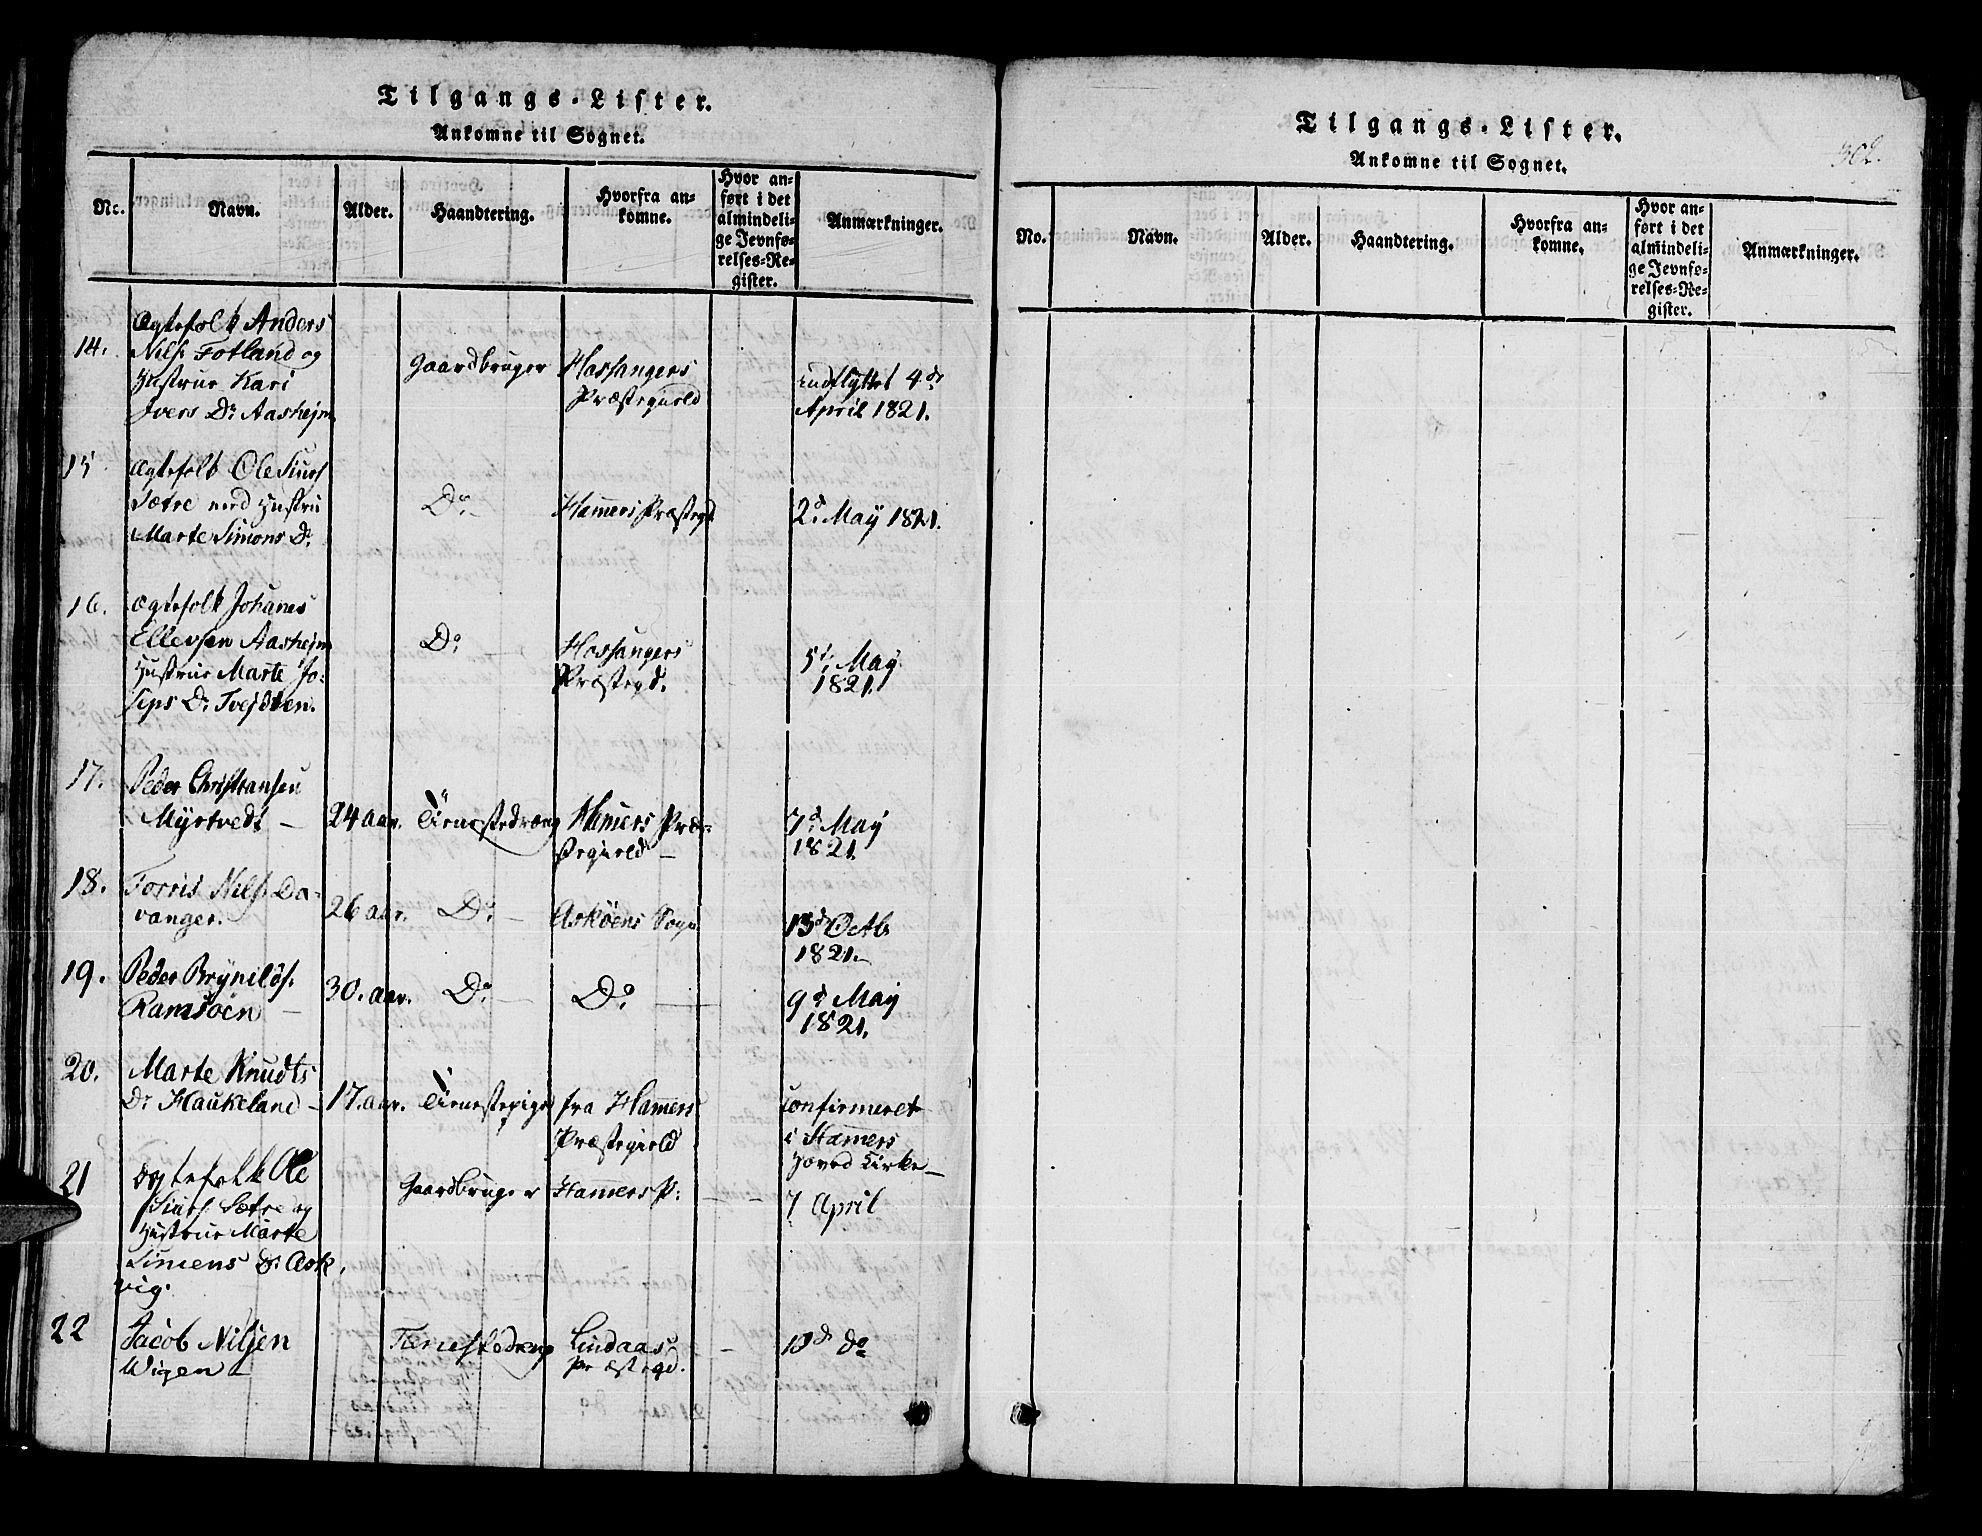 Tilgangs-Lister.
Ankomne til Sognet.
No. Navn. Alder. Haandtering. Hvorfra ankomne. Hvor anført i det almindelige Jevnførelses-Register. Anmærkninger.
14. Ægtefolk Anders
Nils: Fotland og
Hustrue Kari
Ivers Dr Aashejm
Gaardbruger
Hossangers
Præstegield
indflyttet 4de
April 1821.
15 Ægtefolk Ole Siurs
Sætre med Hustru
Marte Simons Dr
Do
Hamers Præstegd
2d May 1821.
16. Ægtefolk Johanes
Ellevsen Aashejm
Hustrue Marte Jo-
seps Dr Tvejsten.
Do
Hossangers
Præstegd.
5t May
1821.
17. Peder Christiansen
Myrtvedt —
24 aar.
Tienestedræng
Hamers Præ-
stegield —
7d May
1821.
18. Torris Nils: Da-
vanger.
26 aar.
Do —
Askøens Sogn
13d Octb.
1821.
19. Peder Bryniløs:
Ramsøen —
30. aar.
Do —
Do —
9d May
1821.
20. Marte Knudts
Dr Haukeland —
17. aar.
Tienestepige
fra Hamers
Præstegield
Confirmeret
i Hamers
Hoved Kirke —
21 Ægtefolk Ole
Siurs: Sætre og
Hustrue Marte
Simens Dr Ask
vig.
Gaardbruger
Hamers P:
7 April
22 Jacob Nilsen
Wigen —
Tienestedreng
Lindaas
Præstegd.
10d do
Tilgangs-Lister.
Ankomne til Sognet.
302.
No. Navn. Alder. Haandtering. Hvorfra ankomne. Hvor anført i det almindelige Jevnførelses-Register. Anmærkninger.